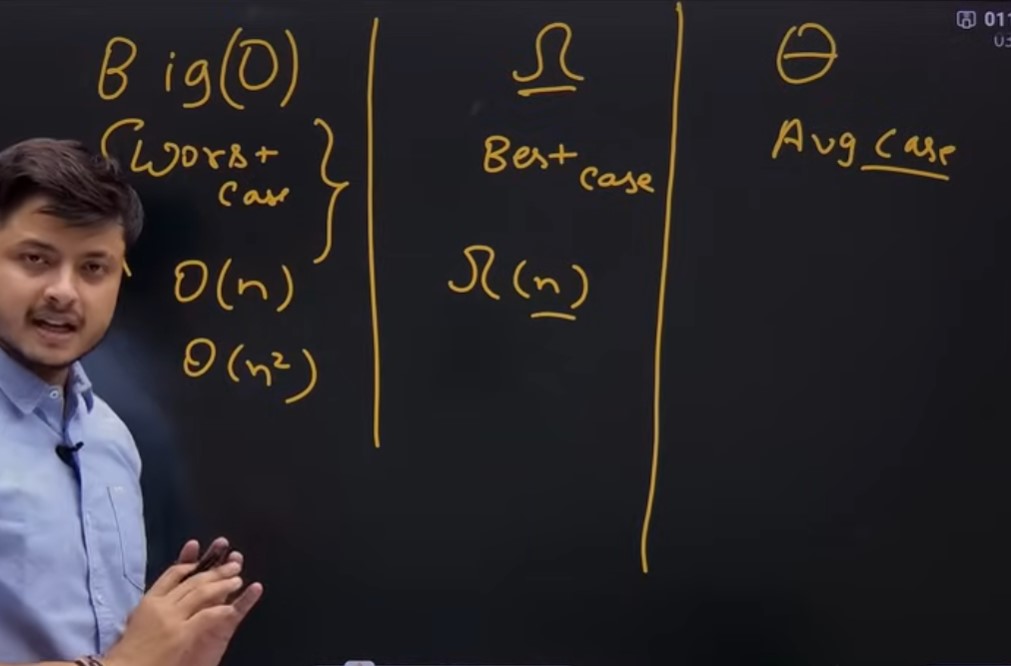 Big(O)
Worst
Case
O(n)
O(n²)
Ω
Best
Case
Ω(n)
θ
Avg Case